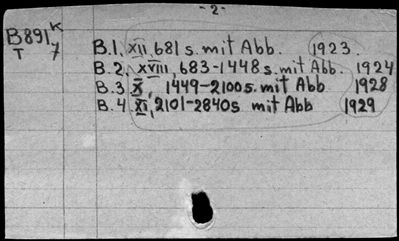 -2-
B891K
T 7
B.1, XII, 681 s. mit Abb. 1923.
B.2, XVIII, 683-1448 s. mit Abb. 1924
B.3 X, 1449-2100 s. mit Abb 1928
B.4 XI, 2101-2840 s mit Abb 1929